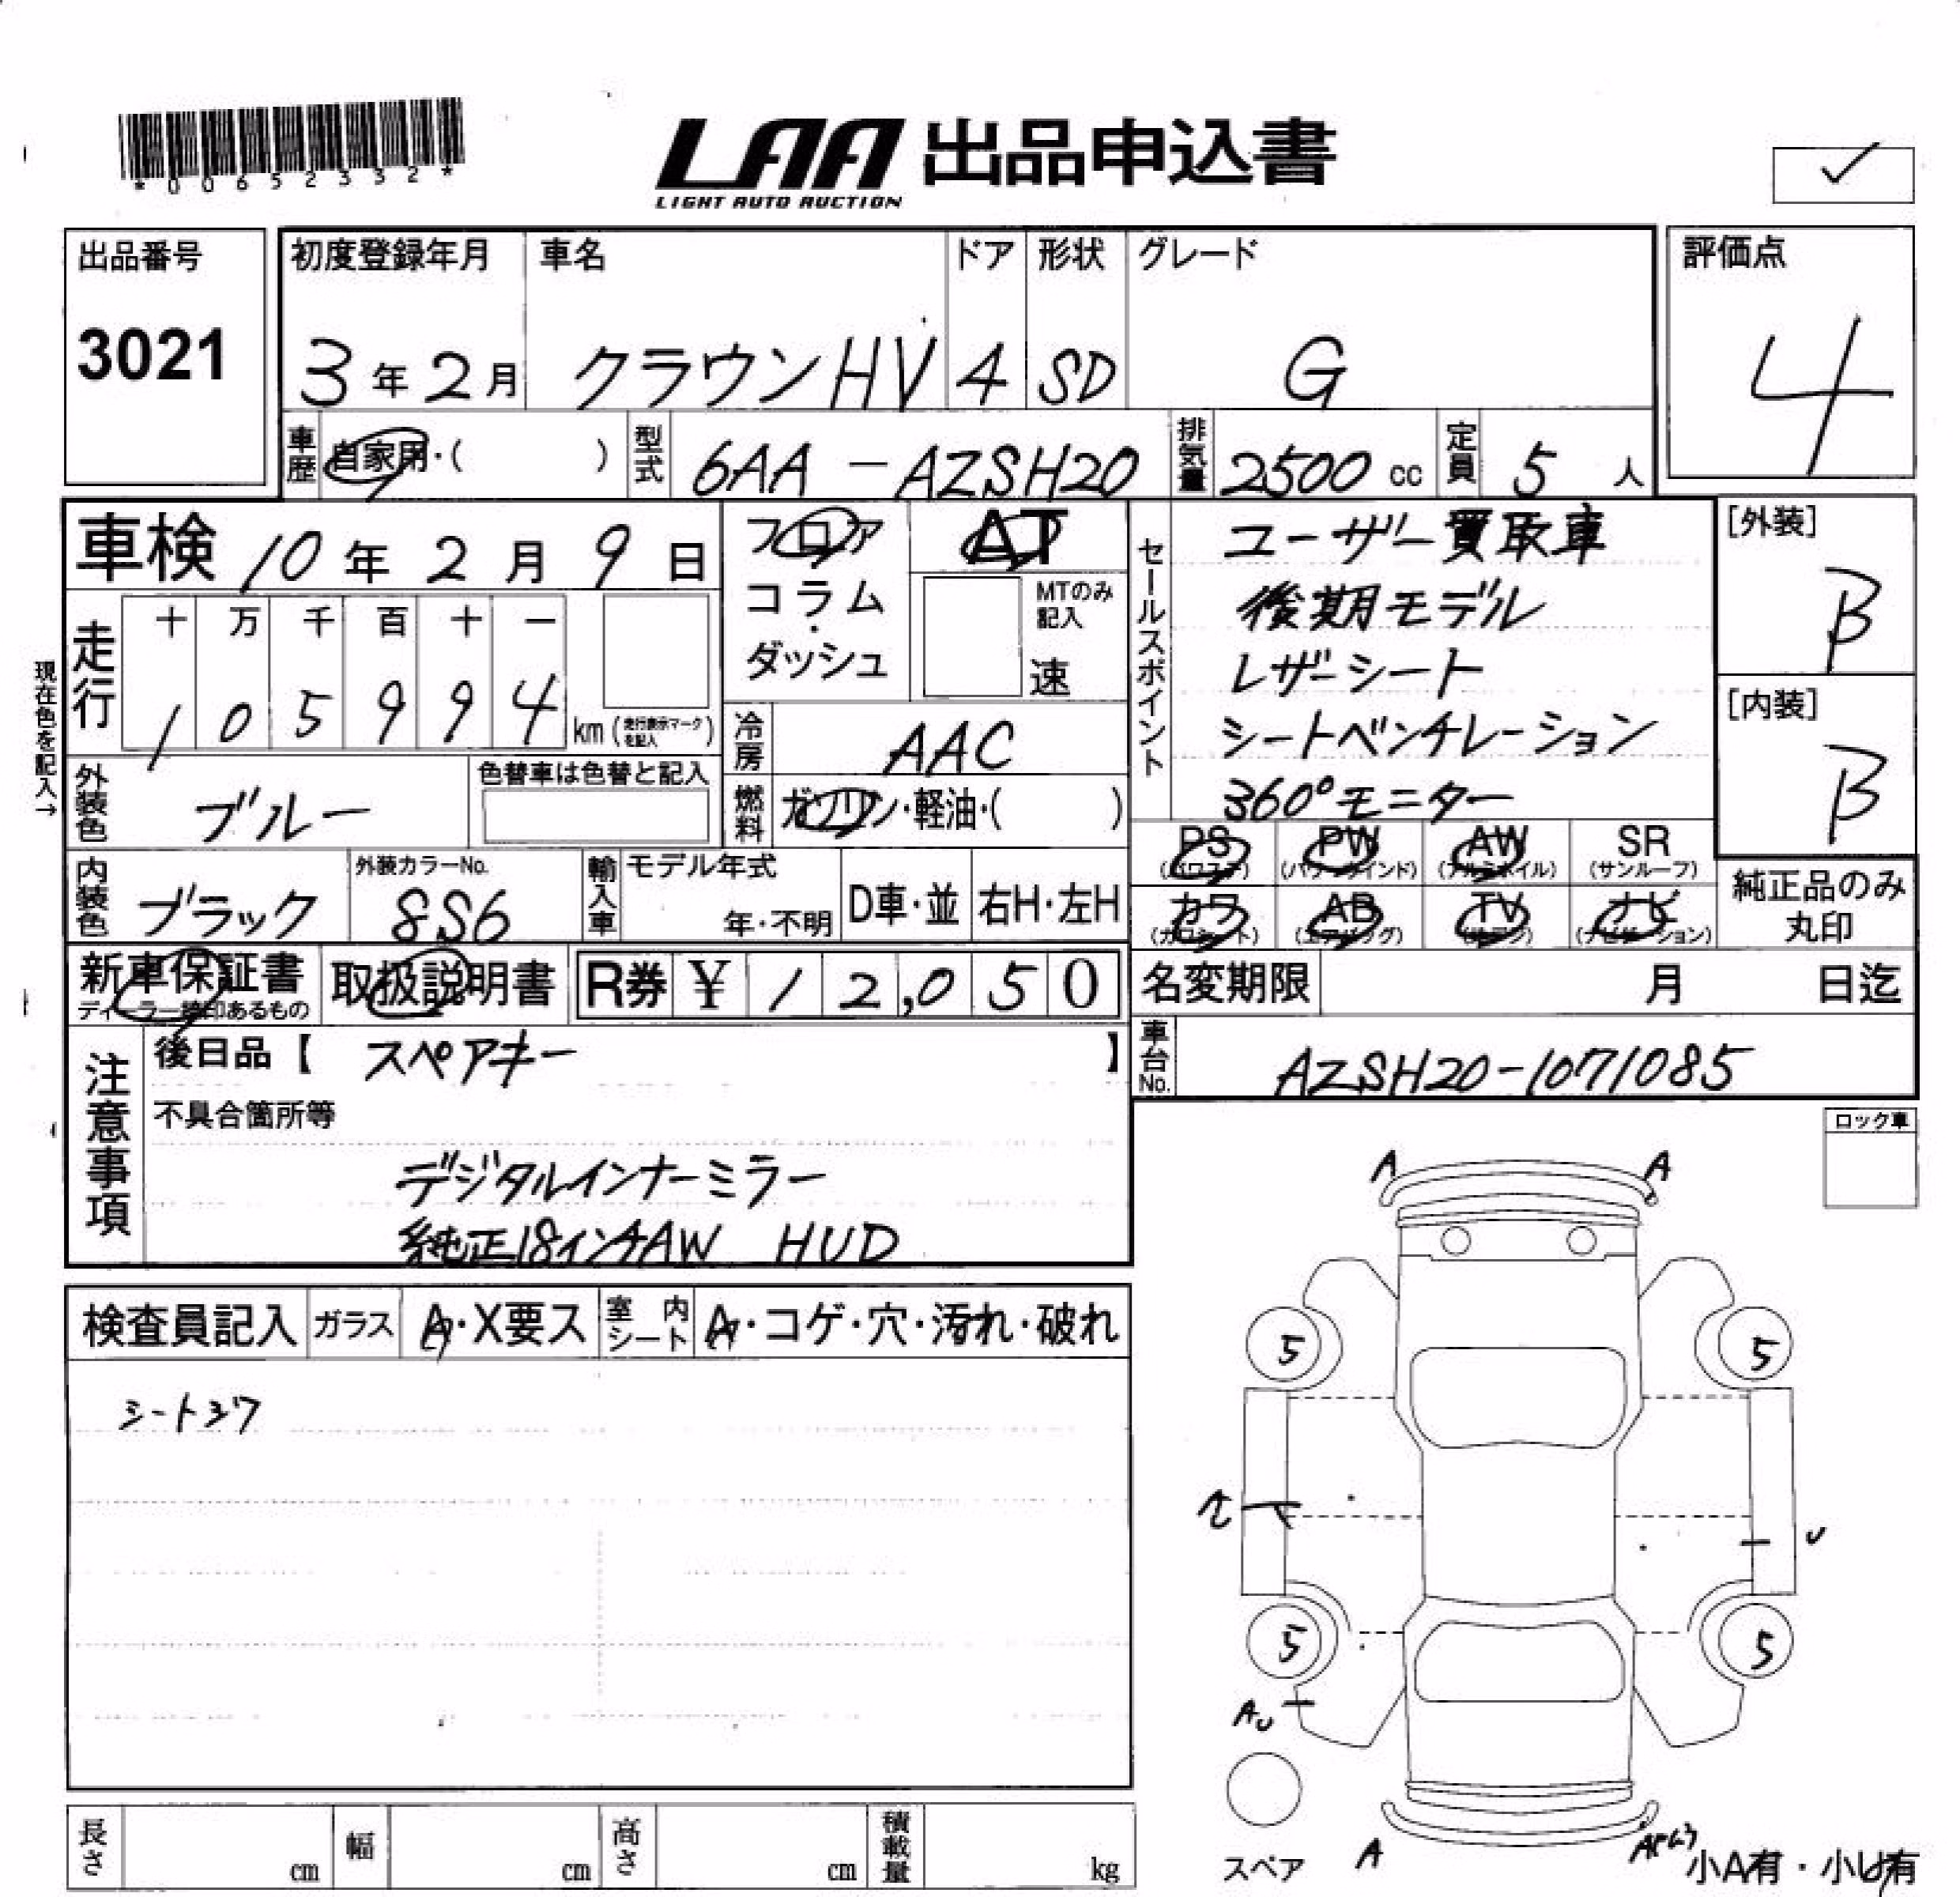 *00652332*
LAA 出品申込書
LIGHT AUTO AUCTION
✓
出品番号
3021
初度登録年月
3年2月
車名
クラウンHV
ドア
4
形状
SD
グレード
G
評価点
4
車歴 自家用・( )
型式 6AA-AZSH20
排気量 2500 cc
定員 5人
車検 10年2月9日
フロア
コラム・
ダッシュ
AT
MTのみ記入
速
セールスポイント
ユーザー買取車
後期モデル
レザーシート
シートベンチレーション
360°モニター
[外装]
B
[内装]
B
現在色を記入→
走行
十 万 千 百 十 一
1 0 5 9 9 4 km (走行表示マークを記入)
冷房 AAC
外装色 ブルー
色替車は色替と記入
燃料 ガソリン・軽油・( )
PS (パワステ)
PW (パワーウインド)
AW (アルミホイル)
SR (サンルーフ)
カワ (カワシート)
AB (エアバッグ)
TV (テレビ)
ナビ (ナビゲーション)
純正品のみ
丸印
内装色 ブラック
外装カラーNo.
8S6
輸入車
モデル年式
年・不明
D車・並
右H・左H
新車保証書
ディーラー捺印あるもの
取扱説明書
R券 ¥ 12,050
名変期限 月 日迄
車台No. AZSH20-1071085
注意事項
後日品【 スペアキー 】
不具合箇所等
デジタルインナーミラー
純正18インチAW HUD
ロック車
検査員記入
ガラス A・X要ス
室内シート A・コゲ・穴・汚れ・破れ
シートシワ
A A
5 5
U
5 5
AU
スペア
A
小A有・小U有
長さ cm
幅 cm
高さ cm
積載量 kg